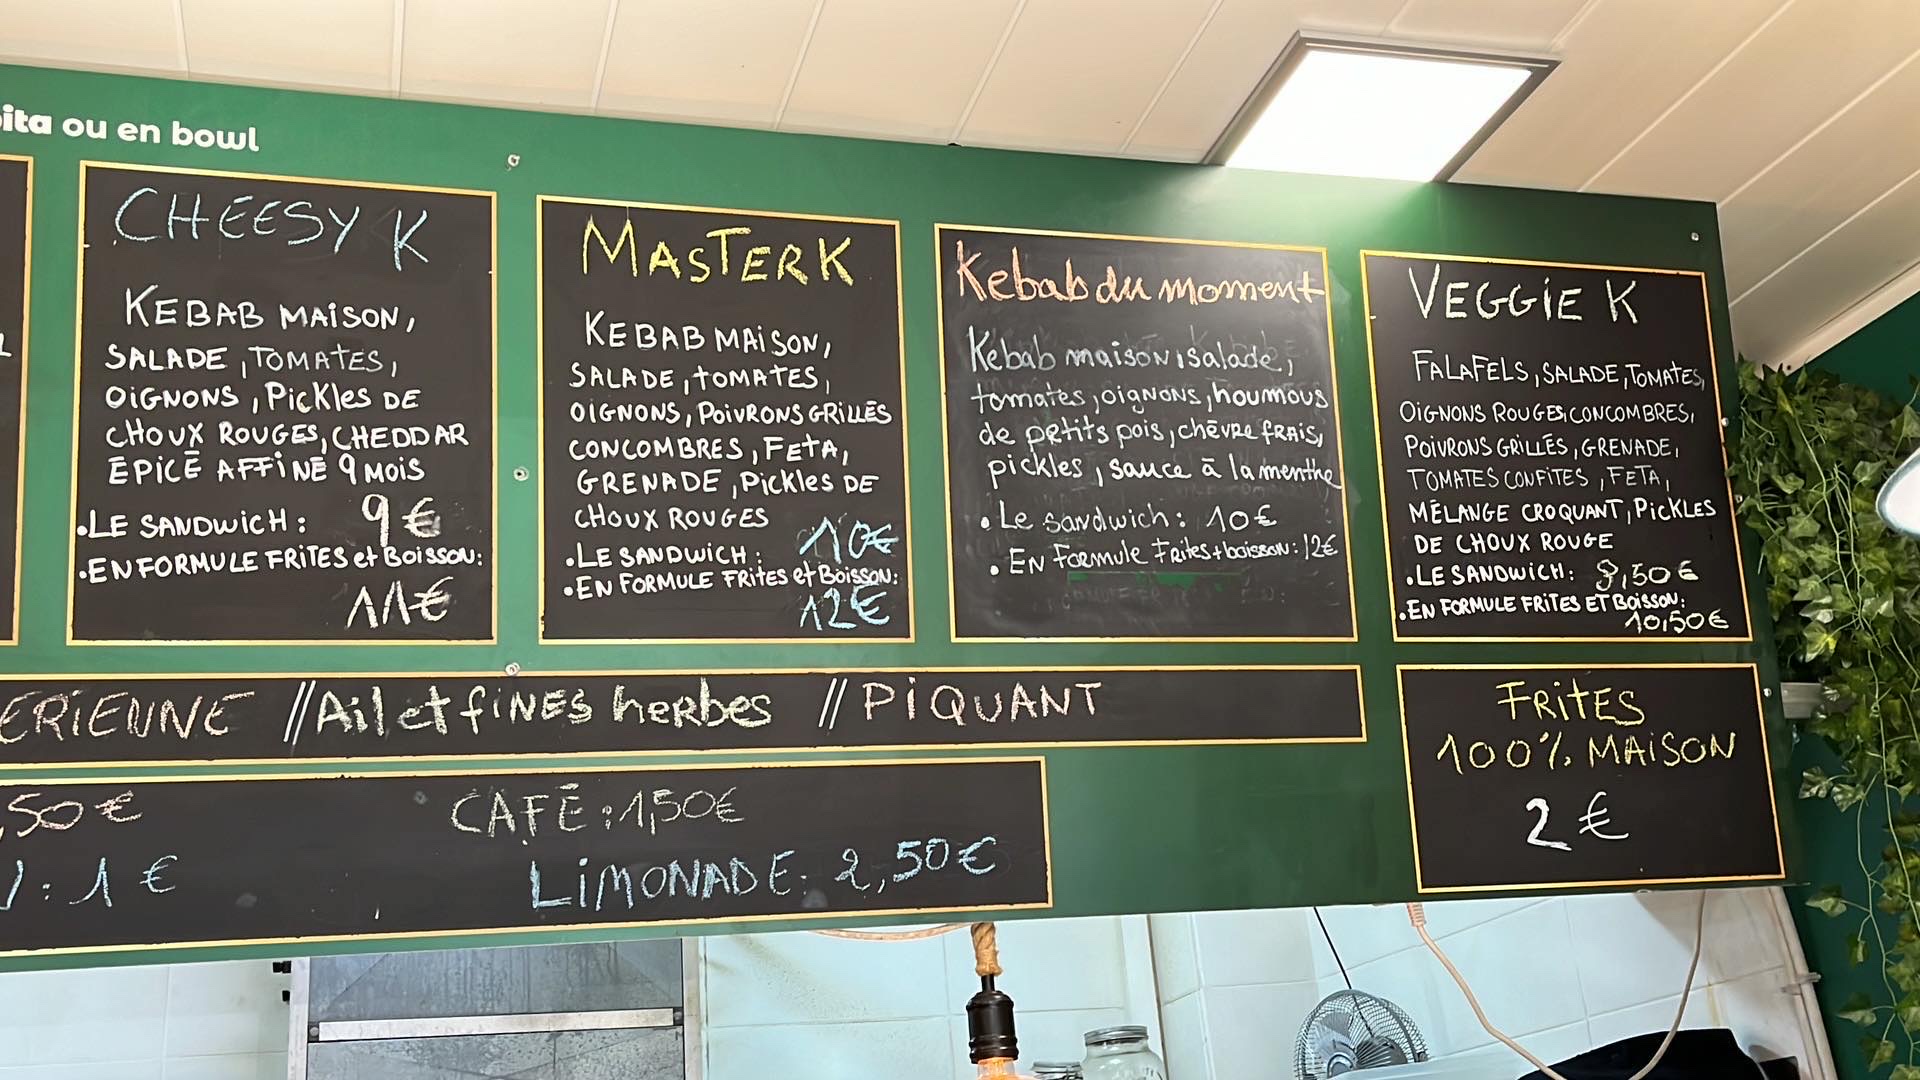 ou en bowl
CHEESY K
KEBAB MAISON,
SALADE, TOMATES,
OIGNONS, PICKLES DE
CHOUX ROUGES, CHEDDAR
ÉPICÉ AFFINÉ 9 MOIS
•LE SANDWICH: 9€
•EN FORMULE FRITES et BOISSON:
11€
MASTER K
KEBAB MAISON,
SALADE, TOMATES,
OIGNONS, POIVRONS GRILLÉS
CONCOMBRES, FETA,
GRENADE, PICKLES DE
CHOUX ROUGES
•LE SANDWICH: 10€
•EN FORMULE FRITES et BOISSON:
12€
Kebab du moment
Kebab maison, salade,
tomates, oignons, houmous
de petits pois, chèvre frais,
pickles, sauce à la menthe
• Le sandwich: 10€
• EN Formule Frites + boisson: 12€
VEGGIE K
FALAFELS, SALADE, TOMATES,
OIGNONS ROUGES, CONCOMBRES,
POIVRONS GRILLÉS, GRENADE,
TOMATES CONFITES, FETA,
MÉLANGE CROQUANT, PICKLES
DE CHOUX ROUGE
•LE SANDWICH: 8,50€
•EN FORMULE FRITES ET BOISSON:
10,50€
// Ail et fines herbes // PIQUANT
FRITES
100% MAISON
2€
,50€ CAFÉ: 1,50€
: 1€ LIMONADE: 2,50€